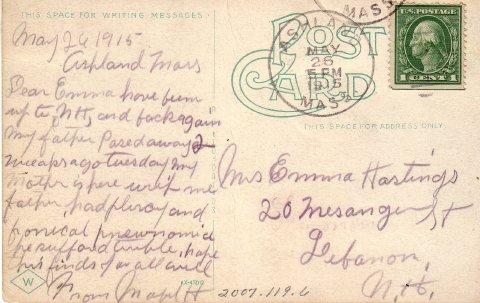 THIS SPACE FOR WRITING MESSAGES
May 26 1915
Ashland Mass
Dear Emma have been
up to NH, and back again
My father Pased away 2
weeks ago tuesday My
Mother is here with me
father had plurcy and
pnewnomia
he sufford hope
this finds you all well
From H
W
POST CARD
ASHLAND
MAY
26
5 PM
1915
MASS.
MASS
U.S. POSTAGE
1 CENT 1
THIS SPACE FOR ADDRESS ONLY
Mrs Emma Hastings
20 Mesanger St
Lebanon,
N.H.
2007.119.6